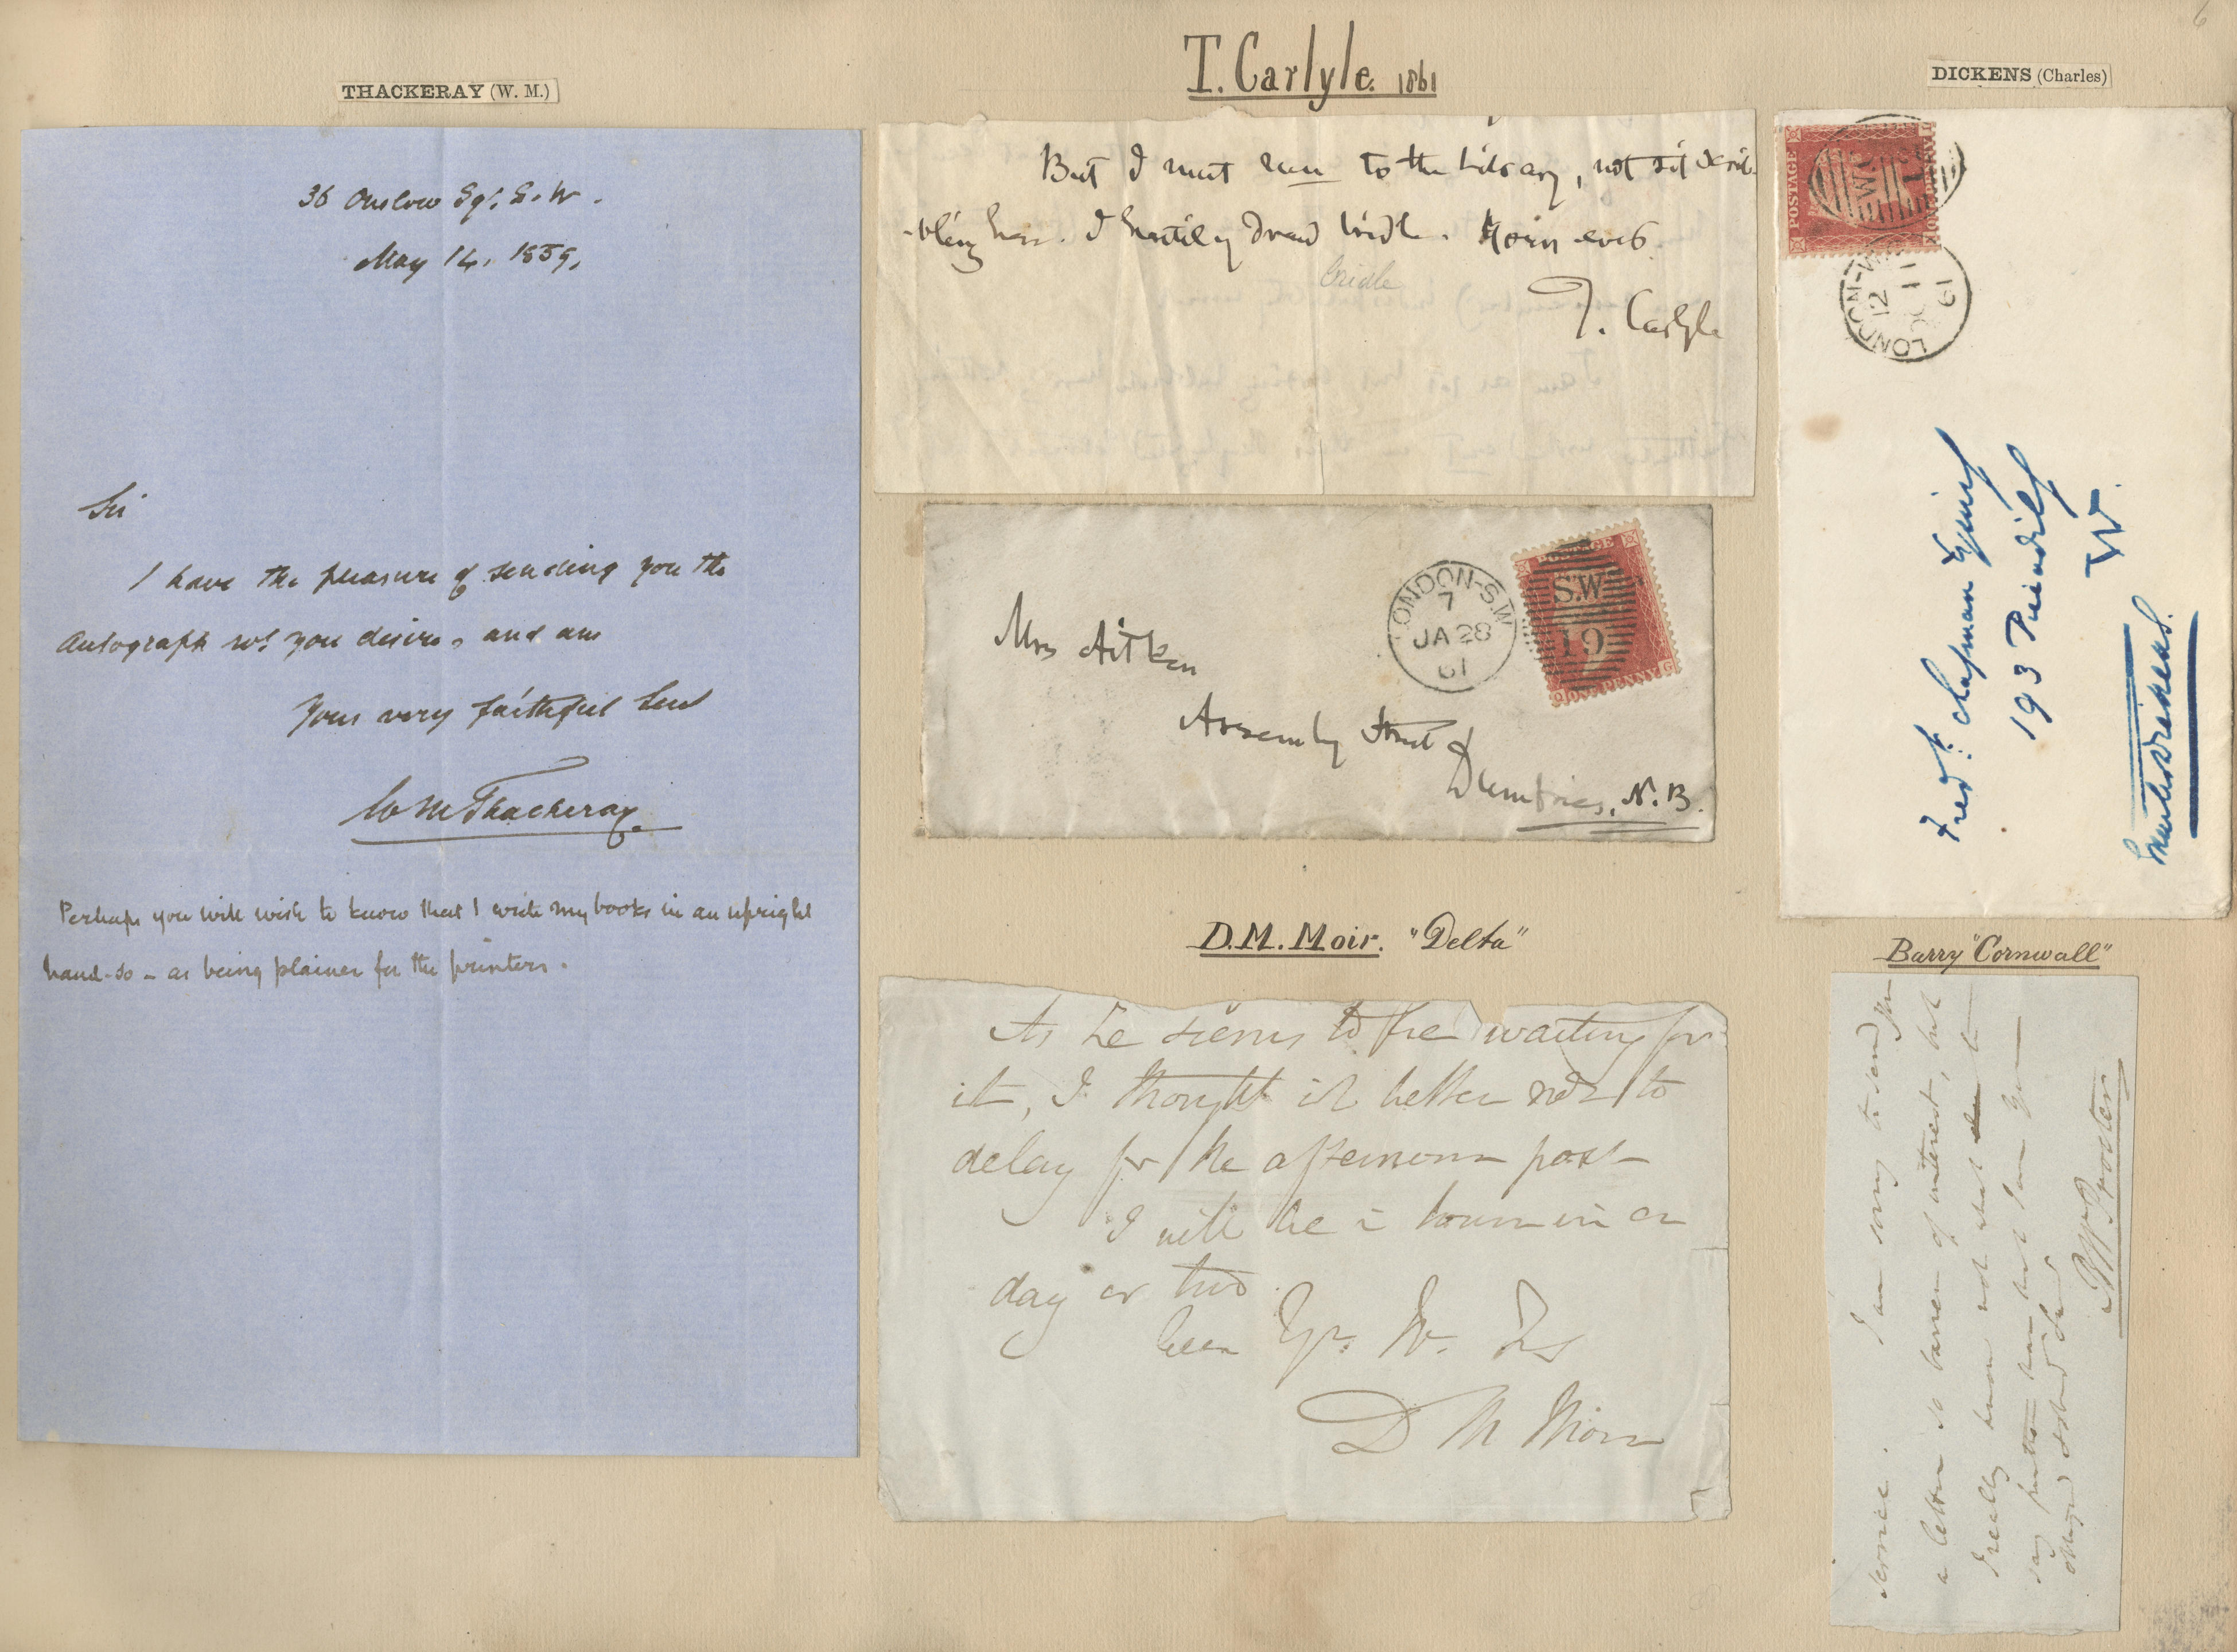 6
THACKERAY (W. M.)
36 Onslow Sqr. S. W.
May 14. 1859.
Sir
I have the pleasure of sending you the
Autograph wh you desire, and am
Your very faithful Servt
W M Thackeray.
Perhaps you will wish to know that I write my books in an upright
hand-so - as being plainer for the printers.
T. Carlyle. 1861
But I must run to the Library, not sit scrib-
-bling here. I hastily draw bridle. Yours ever
bridle
T. Carlyle
LONDON-S.W
7
JA 28
61
POSTAGE
S.W
19
ONE PENNY
Q G
Mrs Aitken
Assembly Street
Dumfries, N.B.
D.M. Moir. "Delta"
As he seems to be waiting for
it, I thought it better not to
delay for the afternoon post-
I will be in town in a
day or two.
Yr.
D M Moir
DICKENS (Charles)
POSTAGE
ONE PENNY
LONDON-W
12
OC 11
61
Fredk. Chapman Esquire
193 Piccadilly
W.
Charles Dickens.
Barry "Cornwall"
service. I am sorry to send you
a letter so barren of interest, but
I really know not what to
say further than that I am Your
obliged
B W Procter